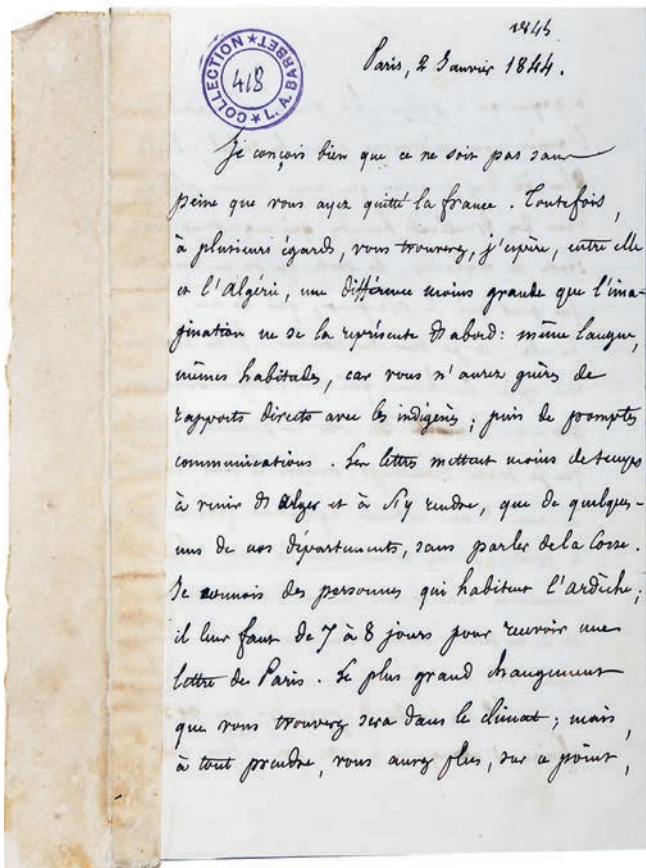 1845
Paris, 2 Janvier 1844.
COLLECTION ★ L. A. BARBET ★
418
Je conçois bien que ce ne soit pas sans
peine que vous ayez quitté la france. Toutefois,
à plusieurs égards, vous trouverez, j'espère, entre elle
et l'Algérie, une différence moins grande que l'ima-
gination ne se la représente d'abord: même langue,
mêmes habitudes, car vous n'aurez guères de
rapports directs avec les indigènes; puis de promptes
communications. Les lettres mettent moins de temps
à venir d'alger et à s'y rendre, que de quelques-
uns de nos départements, sans parler de la Corse.
Je connais des personnes qui habitent l'ardèche;
il leur faut de 7 à 8 jours pour recevoir une
lettre de Paris. Le plus grand changement
que vous trouverez sera dans le climat; mais,
à tout prendre, vous aurez plus, sur ce point,